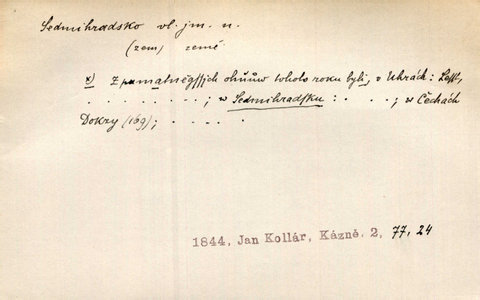 Sedmihradsko vl. jm. n.
(zem) země
x) Z pamatnégssjch ohňůw tohoto roku byli, w Uhrách:
. . . . . . . ; w Sedmihradsku : . . . ; w Čechách
Dokzy (169); . . . . .
1844, Jan Kollár, Kázně. 2, 77, 24